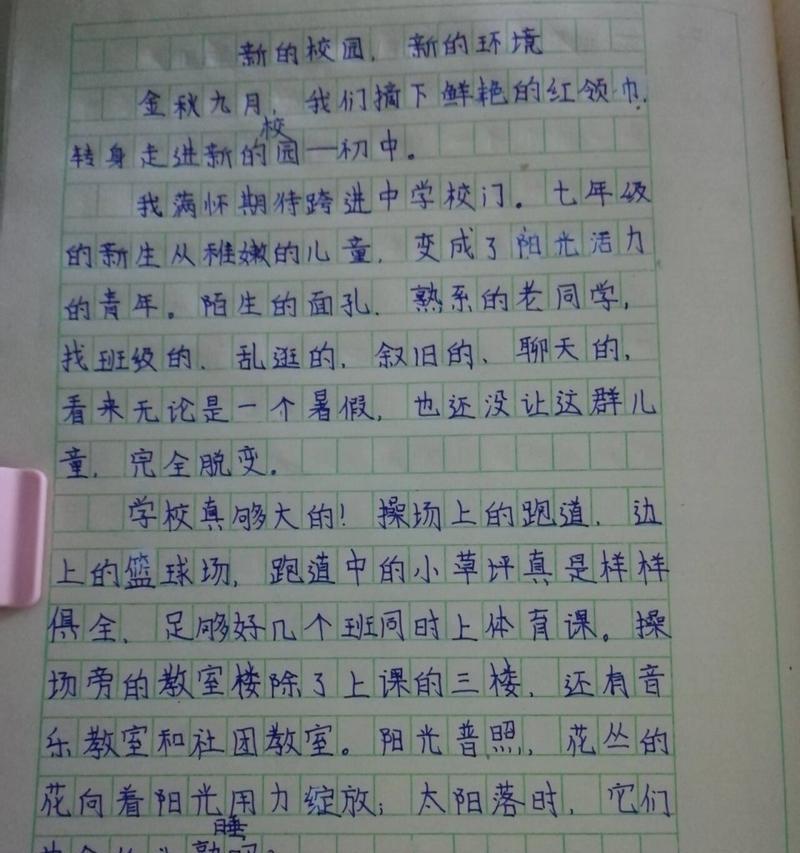 新的校园，新的环境
金秋九月，我们摘下鲜艳的红领巾，
转身走进新的校园—初中。
我满怀期待跨进中学校门。七年级
的新生从稚嫩的儿童，变成了阳光活力
的青年。陌生的面孔，熟系的老同学，
找班级的、乱逛的，叙旧的、聊天的，
看来无论是一个暑假，也还没让这群儿
童，完全脱变。
学校真够大的！操场上的跑道，边
上的篮球场，跑道中的小草坪真是样样
俱全，足够好几个班同时上体育课。操
场旁的教室楼除了上课的三楼，还有音
乐教室和社团教室。阳光普照，花丛的
花向着阳光用力绽放；太阳落时，它们
睡